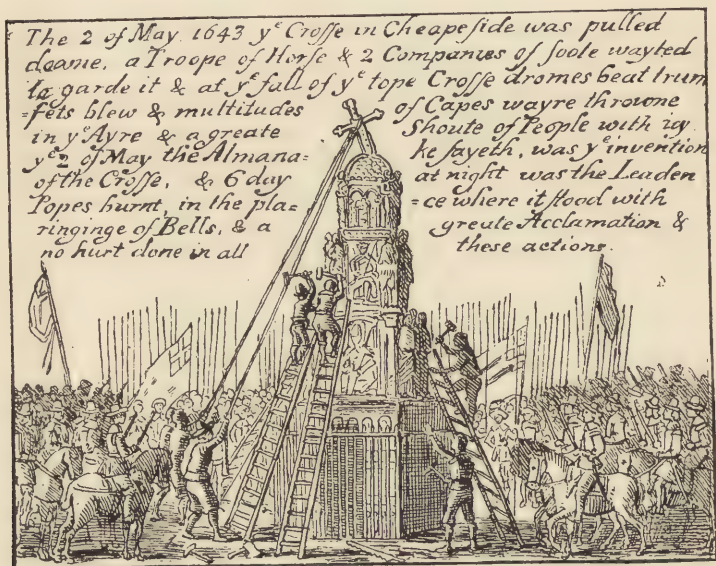 The 2 of May 1643 yᵉ Croſse in Cheapeſide was pulled
downe, a Troope of Horſe & 2 Companies of foote wayted
to garde it & at yᵉ fall of yᵉ tope Croſse dromes beat trum
=pets blew & multitudes of Capes wayre throwne
in yᵉ Ayre & a greate Shoute of People with ioy
yᵉ 2 of May the Almana= ke ſayeth, was yᵉ invention
of the Croſse, & 6 day at night was the Leaden
Popes burnt, in the pla= =ce where it ſtood with
ringinge of Bells, & a greate Acclamation &
no hurt done in all these actions.